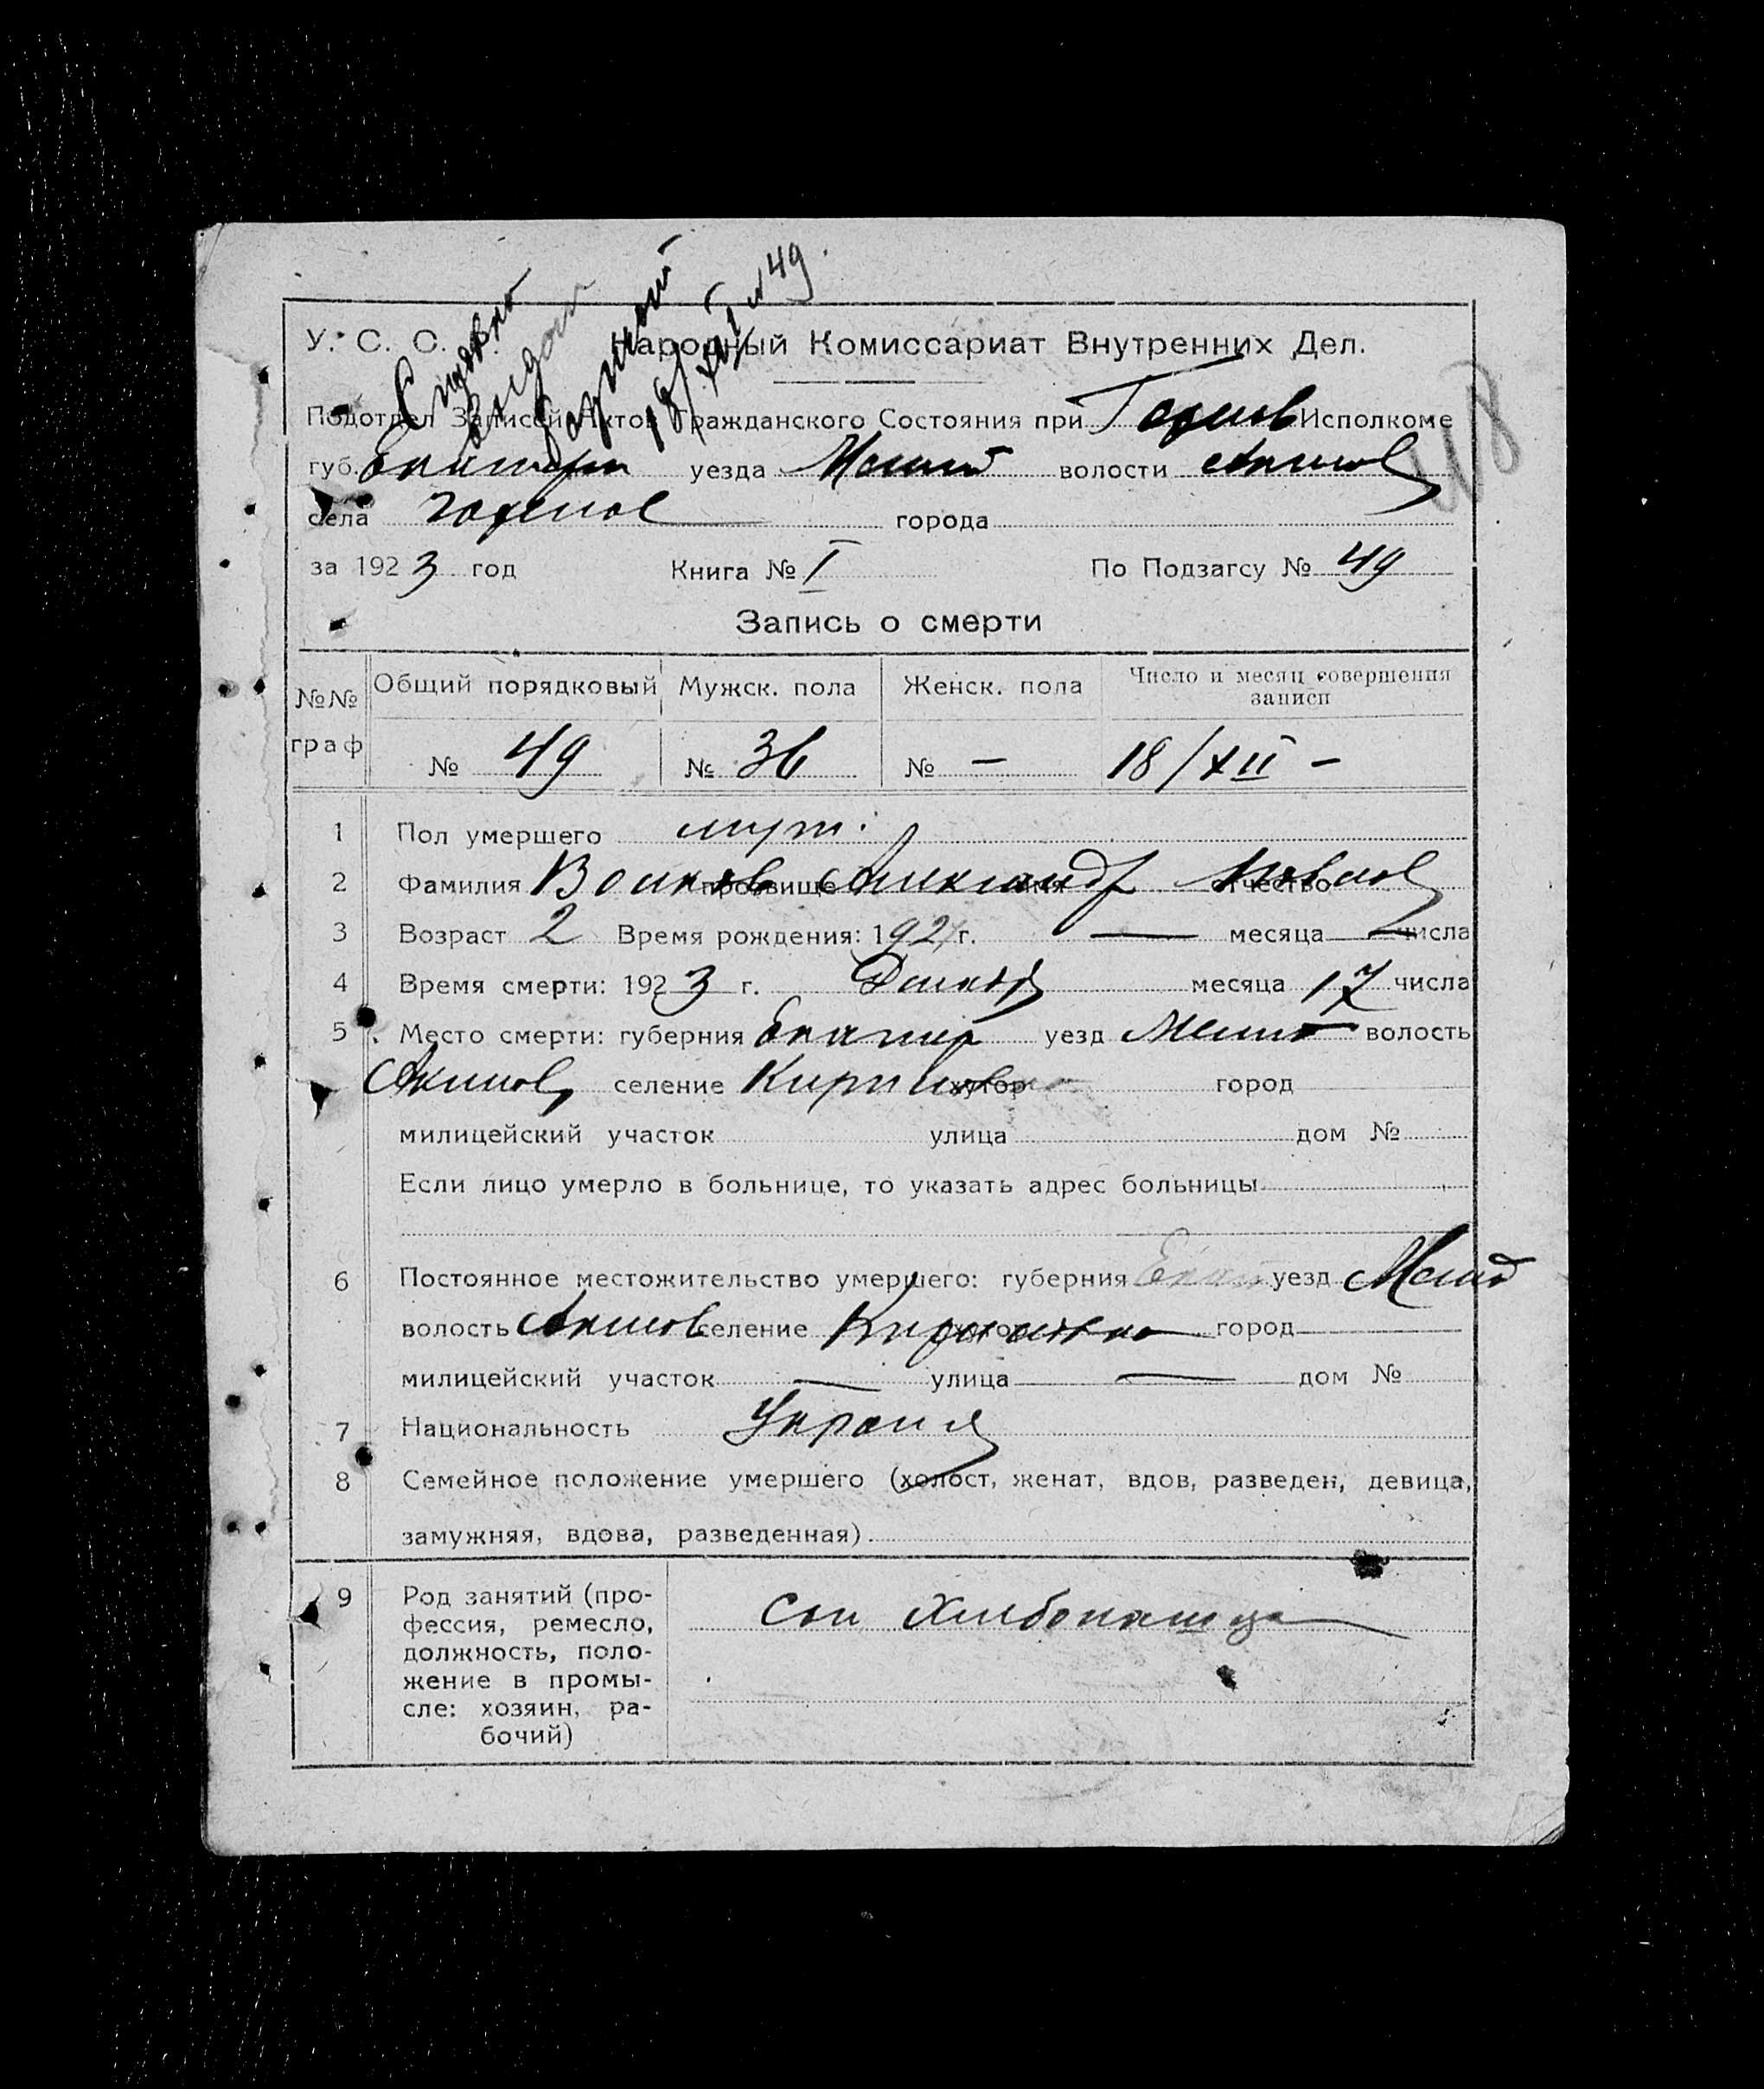 У. С. С. Народный Комиссариат Внутренних Дел.
Подотдел Записей Актов Гражданского Состояния при Исполкоме
губ. Екатер уезда Мелит волости Акимов
села города
за 1923 год Книга № I По Подзагсу № 49
Запись о смерти
№№ граф Общий порядковый Мужск. пола Женск. пола Число и месяц совершения записи
№ 49 № 36 № — 18/XII –
1 Пол умершего муж.
2 Фамилия прозвище Александр имя отчество
3 Возраст 2 Время рождения: 1921 г. — месяца — числа
4 Время смерти: 1923 г. Декабр месяца 17 числа
5 Место смерти: губерния Екатер уезд Мелит волость
Акимов селение хутор город
милицейский участок улица дом №
Если лицо умерло в больнице, то указать адрес больницы
6 Постоянное местожительство умершего: губерния Екат уезд Мелит
волость Акимов селение хутор город
милицейский участок — улица — дом №
7 Национальность Украин
8 Семейное положение умершего (холост, женат, вдов, разведен, девица,
замужняя, вдова, разведенная)
9 Род занятий (про-
фессия, ремесло,
должность, поло-
жение в промы-
сле: хозяин, ра-
бочий)
Син Хлибопашца